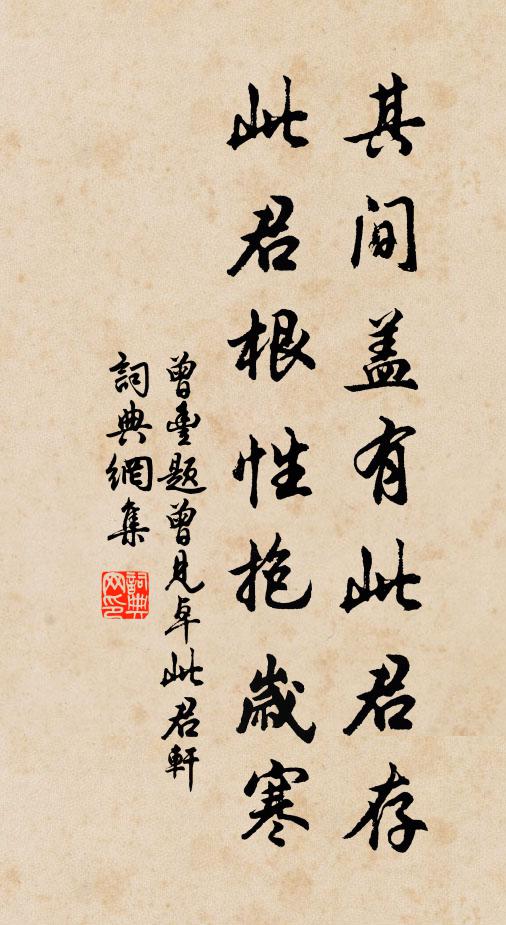 其间盖有此君存
此君根性抱岁寒
曾丰题曾见卓此君轩
词典网集
词典网印